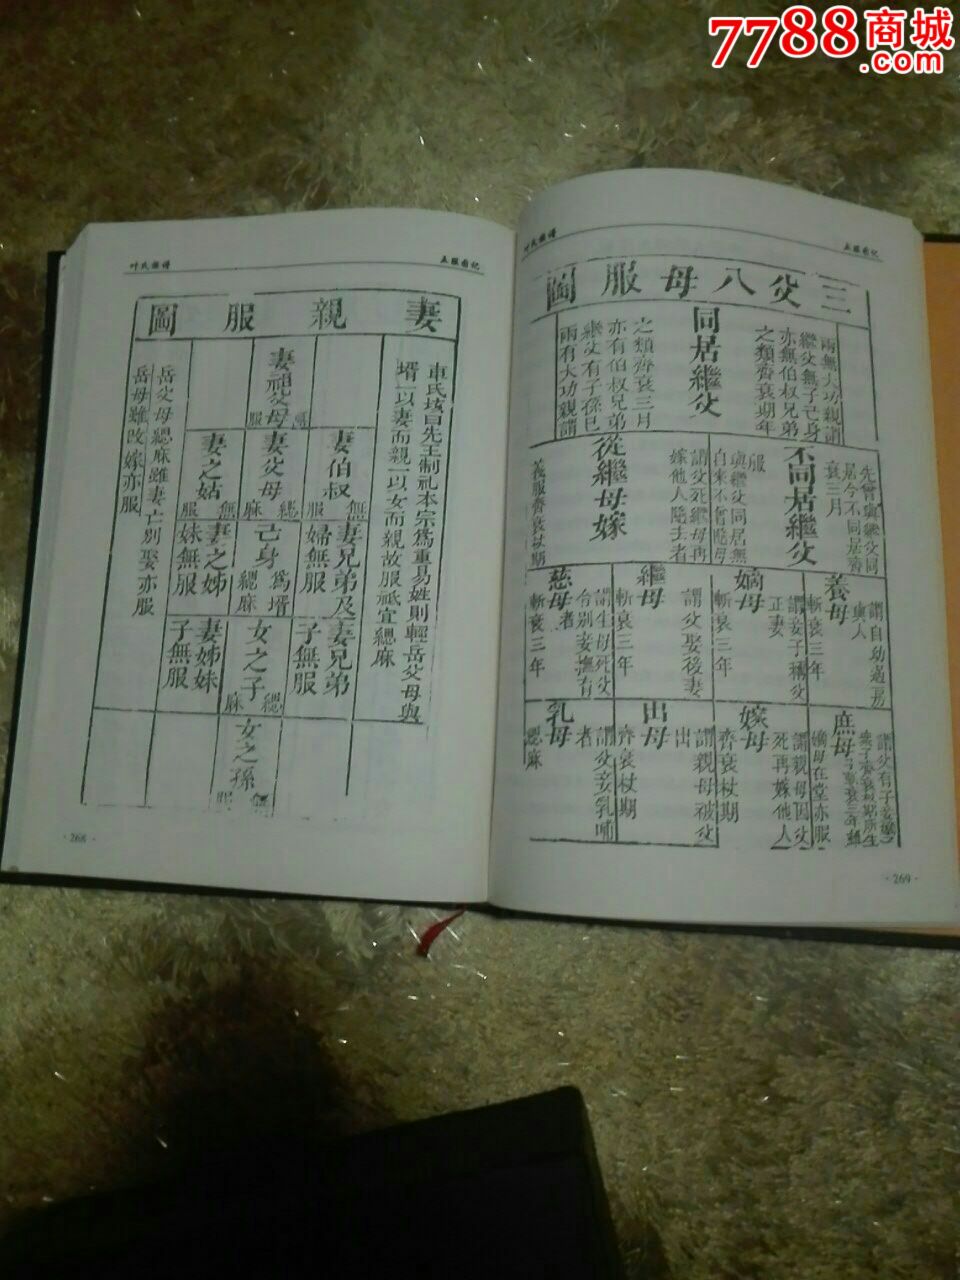 7788商城
.com
叶氏族谱
五服图记
妻親服圖
車氏垓曰先王制礼本宗爲重易姓則輕岳父母與
壻一以妻而親一以女而親故服祗宜緦麻
妻祖父母
無服
妻伯叔
無服
妻父母
緦麻
妻之姑
無服
妻兄弟及
婦無服
己身
爲壻
緦麻
妻之姊
妹無服
妻兄弟
子無服
女之子
緦麻
妻姊妹
子無服
女之孫
無服
岳父母緦麻雖妻亡別娶亦服
岳母雖改嫁亦服
·268·
叶氏族谱
五服图记
三父八母服圖
同居繼父
兩無大功親謂
繼父無子己身
亦無伯叔兄弟
之類齊衰期年
兩有大功親謂
繼父有子孫己
亦有伯叔兄弟
之類齊衰三月
不同居繼父
先曾與繼父同
居今不同居齊
衰三月
自來不曾隨母
與繼父同居無
服
從繼母嫁
謂父死繼母再
嫁他人隨去者
義服齊衰杖期
養母
謂自幼過房
與人
斬衰三年
嫡母
謂妾子稱父
正妻
斬衰三年
繼母
謂父娶後妻
斬衰三年
慈母
謂生母死父
令別妾撫育
者
斬衰三年
庶母
謂父有子妾
嫡母在堂亦服
嫁母
謂親母因父
死再嫁他人
齊衰杖期
出母
謂親母被父
出
齊衰杖期
乳母
謂父妾乳哺
者
緦麻
·269·